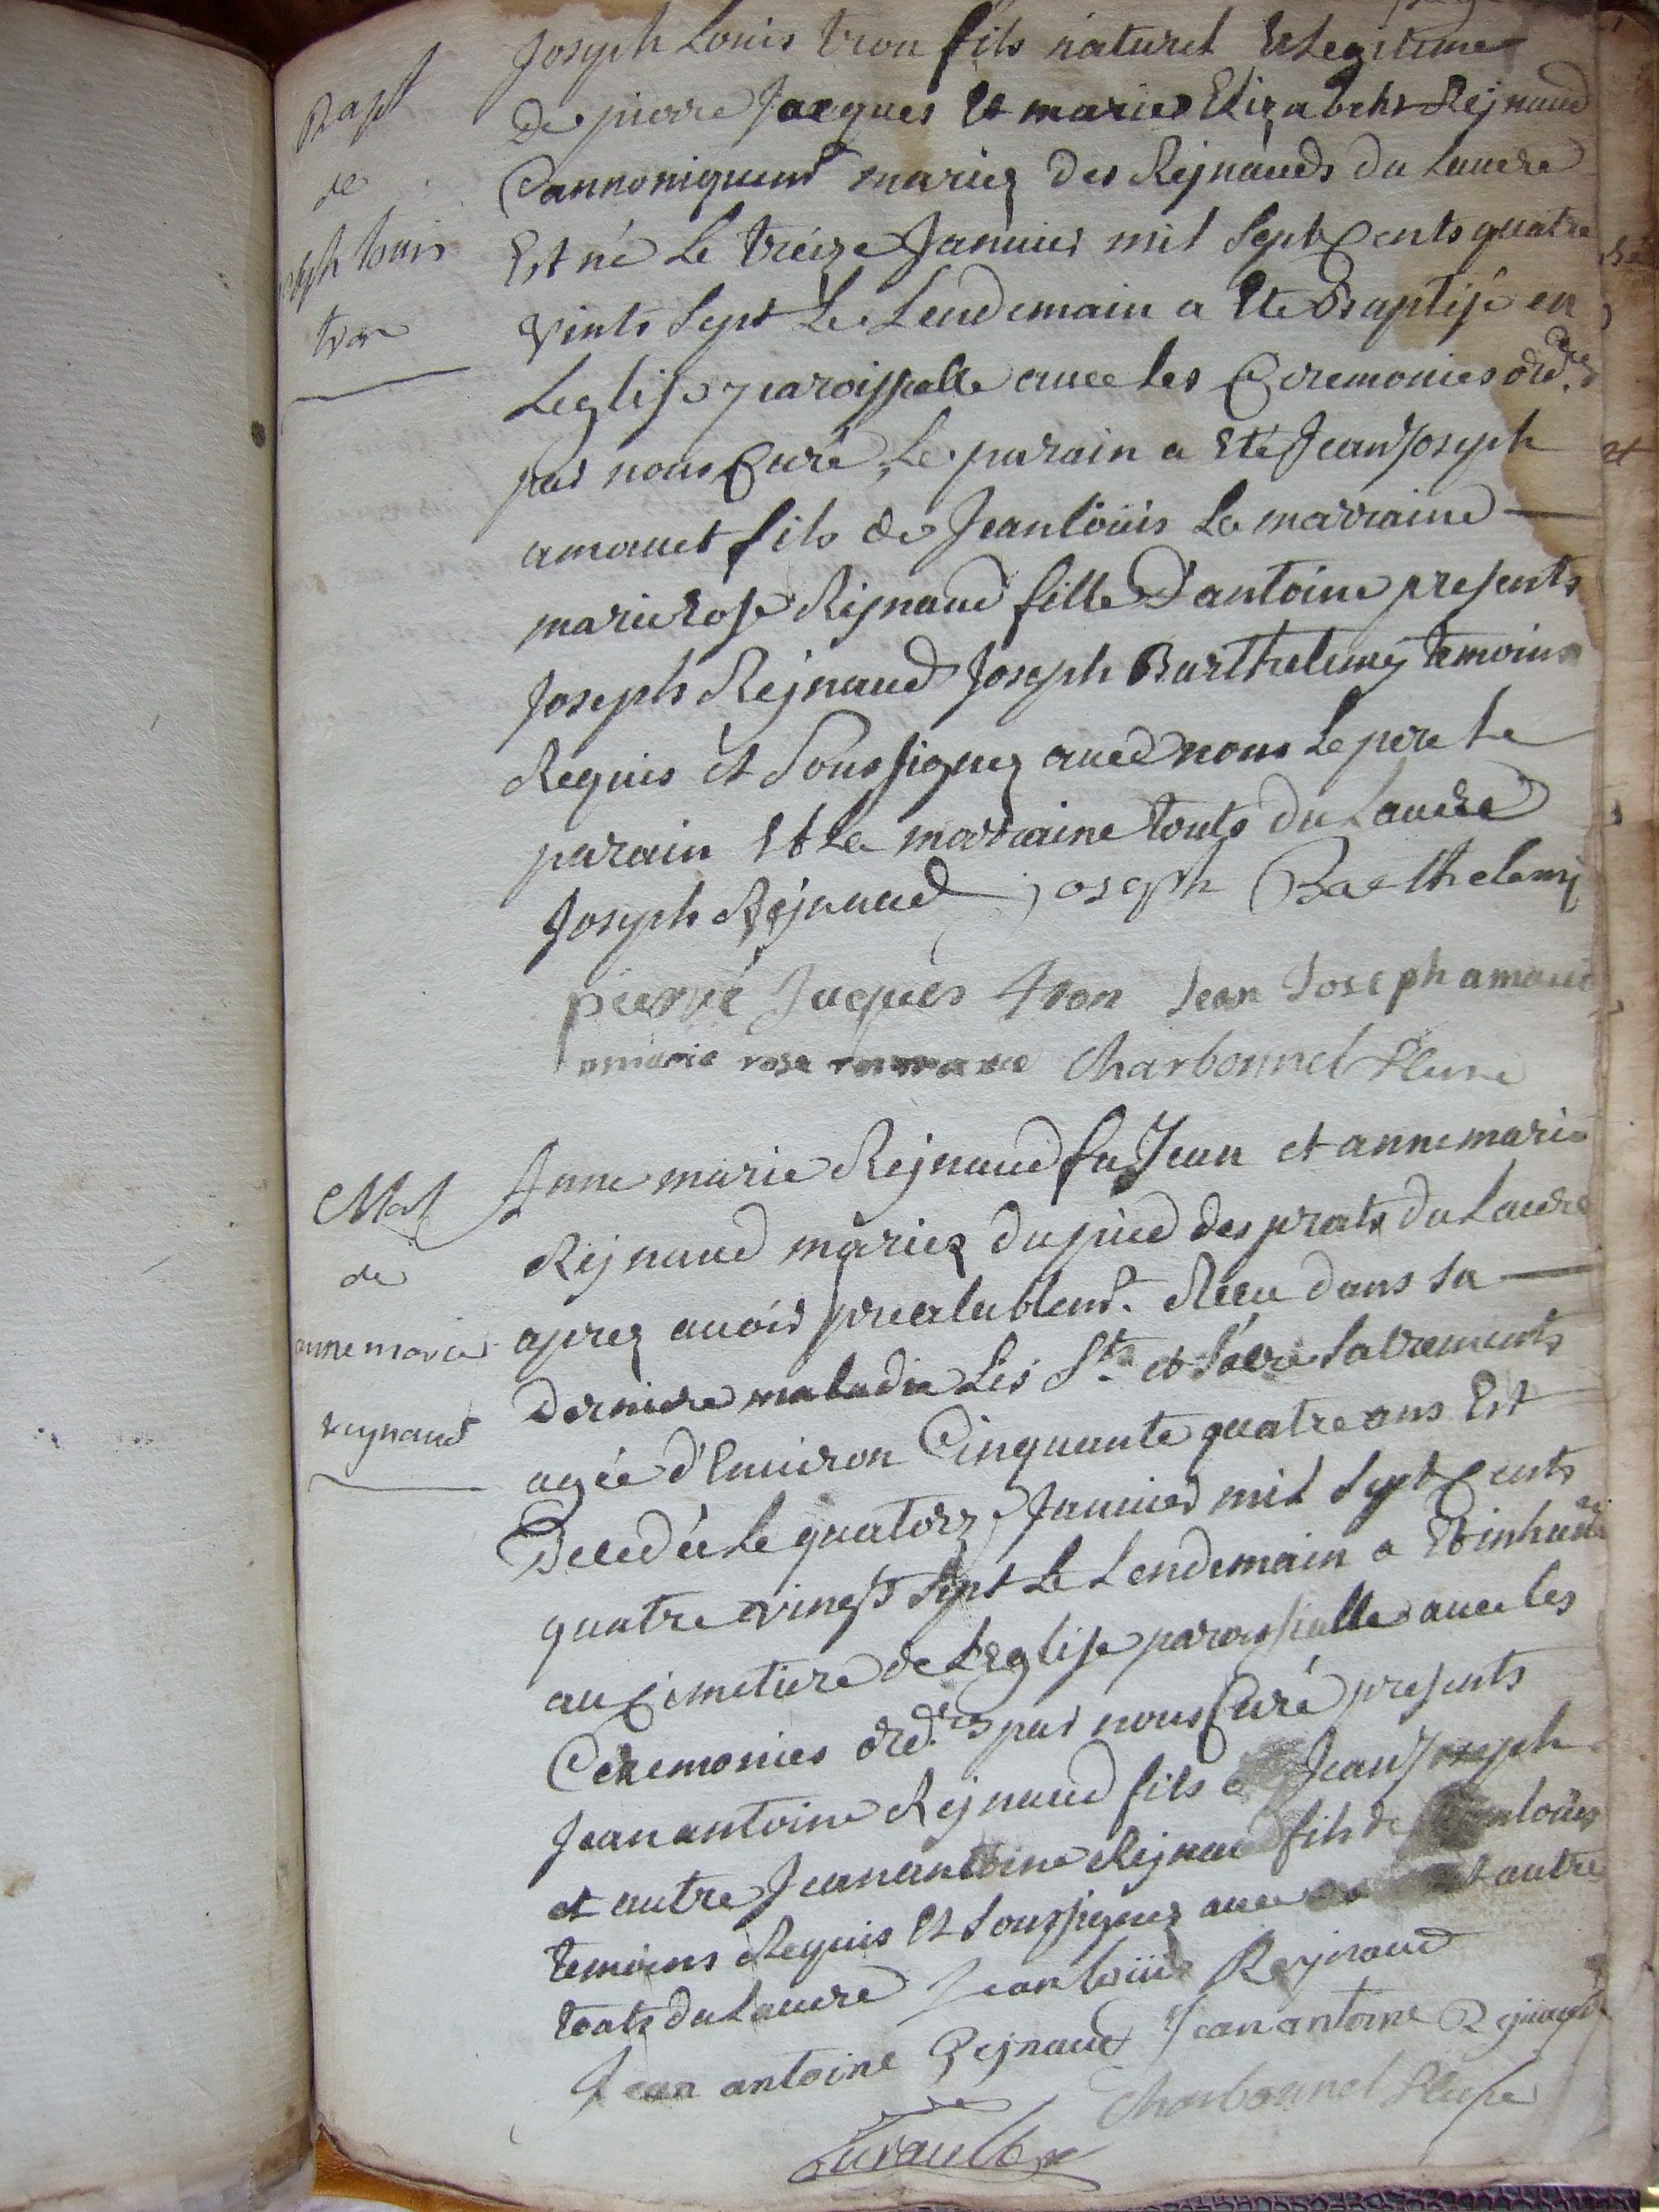 Bapt
de
Joseph Louis
tron
Joseph Louis tron fils naturel Et legitime
de pierre Jacques Et marie Elizabeth Rejnaud
Cannoniquemt mariez des Rejnauds du Lauzet
Est né Le treize Janvier mil Sept Cents quatre
vints Sept Le Lendemain a Ete Baptisé en
Leglise paroissialle avec les Ceremonies ord.res
par nous Curé, Le parain a Eté Jean Joseph
fils de Jean loüis La marraine
marie Rose Rejnaud fille d'antoine presents
Joseph Rejnaud Joseph Barthelemy temoins
Requis et Soussignez avec nous Le pere Le
parain Et La marraine touts du
Joseph Rejnaud Joseph Barthelemy
pierre Jacques tron Jean Joseph
marie rose Charbonnel
Mort
de
anne marie
reynaud
Anne marie Rejnaud fu Jean et anne marie
Rejnaud mariez du pied des prats du
aprez avoir prealablemt. Reçu dans sa
derniere maladie Les Sts. et Sacremements
agée d'Environ Cinquante quatre ans Est
Decedée Le quatorze Janvier mil Sept Cents
quatre vingts Sept Le Lendemain a Eté
au Cimetiere de L'Eglise paroissialle avec les
Ceremonies ord.res par nous Curé presents
Jean antoine Rejnaud fils de Jean Joseph
et autre Jean antoine Rejnaud fils de Jean loüis
temoins Requis Et Soussignez avec autre
touts du Jean loüis Reynaud
Jean antoine Rejnaud Jean antoine Rejnaud
Charbonnel